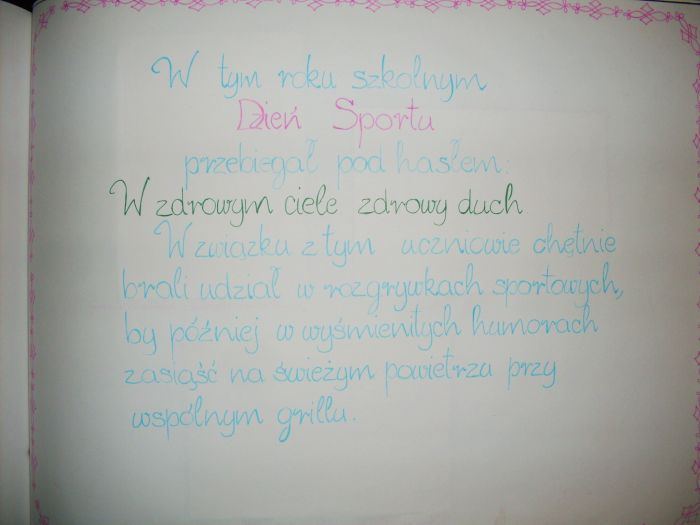 W tym roku szkolnym
Dzień Sportu
przebiegał pod hasłem:
W zdrowym ciele zdrowy duch
W związku z tym uczniowie chętnie
brali udział w rozgrywkach sportowych,
by później w wyśmienitych humorach
zasiąść na świeżym powietrzu przy
wspólnym grillu.